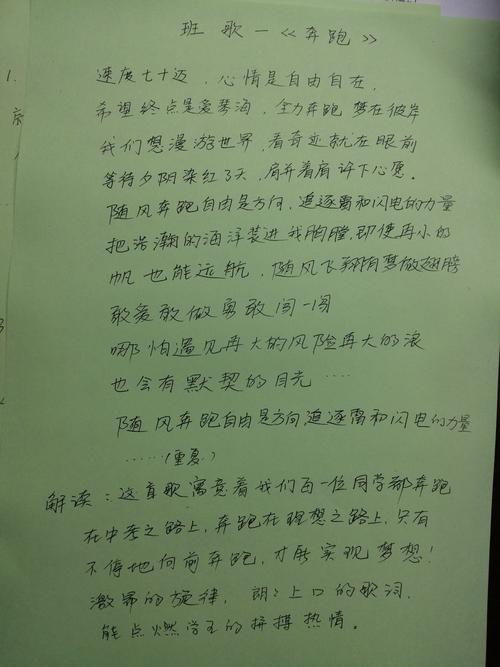 班歌一《奔跑》
速度七十迈，心情是自由自在，
希望终点是爱琴海，全力奔跑梦在彼岸
我们想漫游世界，看奇迹就在眼前
等待夕阴染红了天，肩并着肩许下心愿。
随风奔跑自由是方向，追逐雷和闪电的力量
把浩瀚的海洋装进我胸膛，即使再小的
帆也能远航，随风飞翔有梦做翅膀
敢爱敢做勇敢闯一闯
哪怕遇见再大的风险再大的浪
也会有默契的目光……
随风奔跑自由是方向追逐雷和闪电的力量
……（重复）
解读：这首歌寓意着我们每一位同学都奔跑
在中考之路上，奔跑在理想之路上，只有
不停地向前奔跑，才能实现梦想！
激昂的旋律，朗朗上口的歌词，
能点燃学生的拼搏热情。
1.